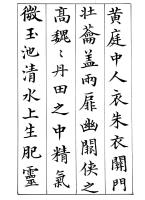 黃庭中人衣朱衣關門
壯蘥蓋兩扉幽闕俠之
高魏〻丹田之中精氣
微玉池清水上生肥靈